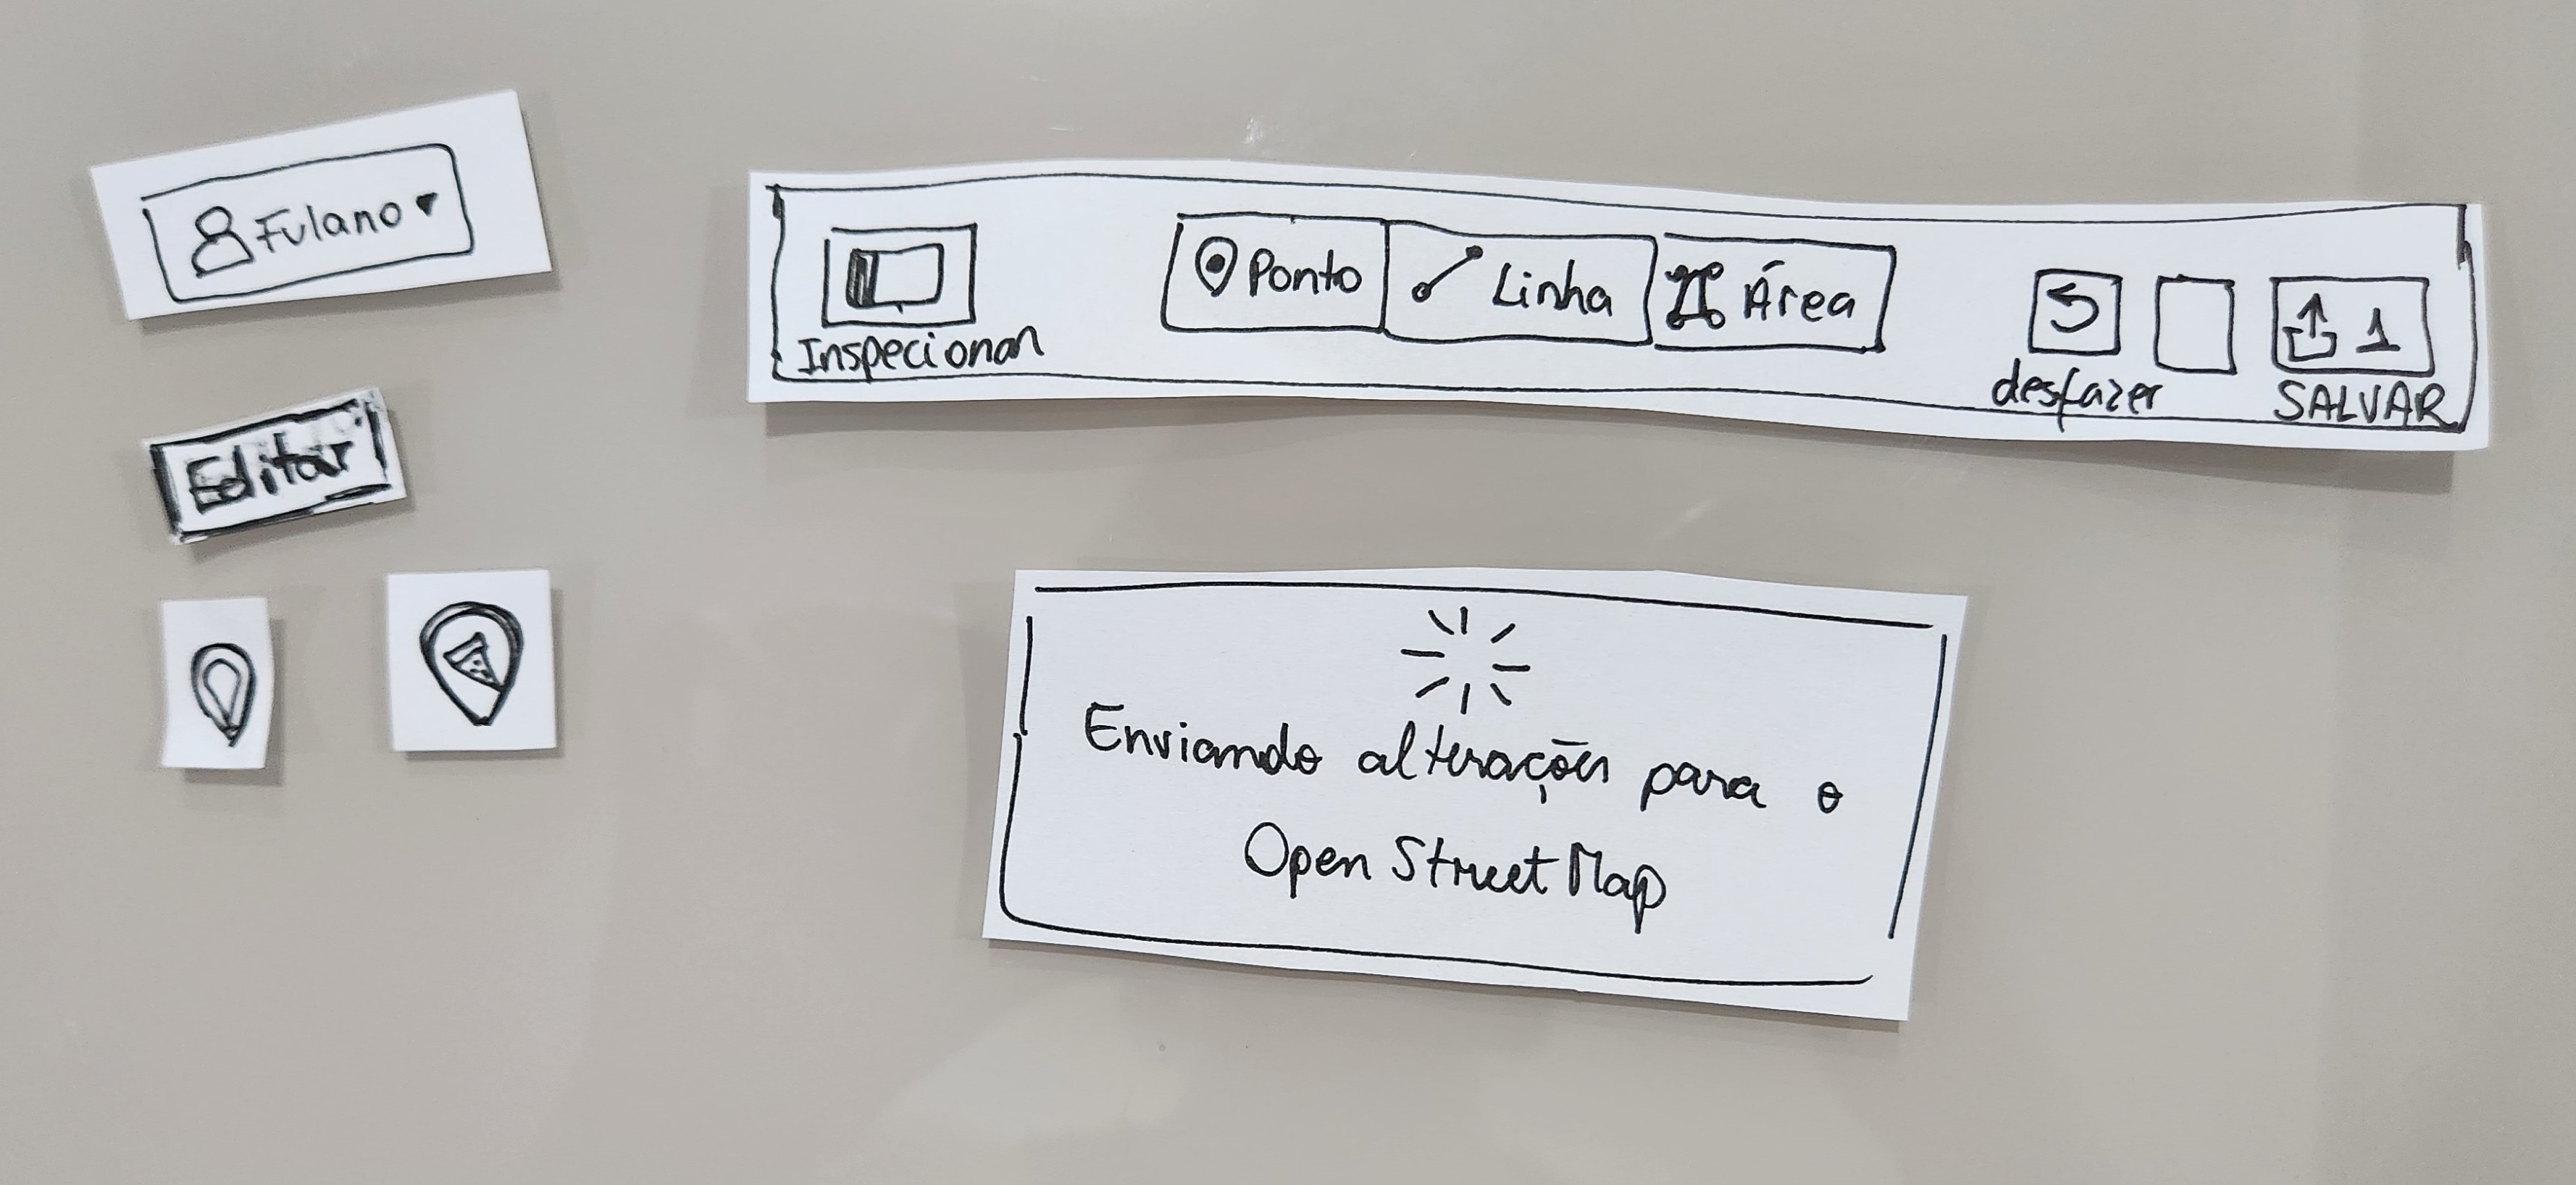 Fulano
Editar
Inspecionar
Ponto
Linha
Área
desfazer
1
SALVAR
Enviando alterações para o
Open Street Map